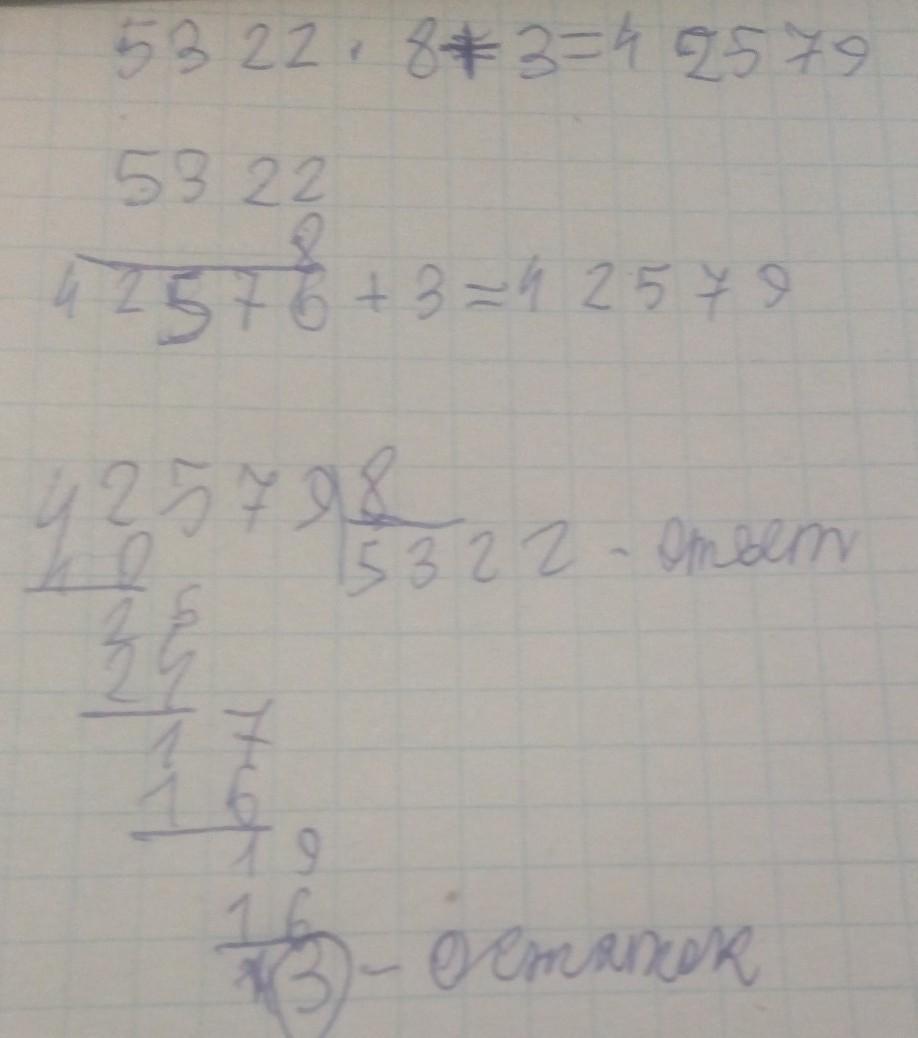 5322 · 8 + 3 = 42579
5322
8
42576 + 3 = 42579
42579 8
40 5322 - ответ
25
24
17
16
19
16
3 - остаток